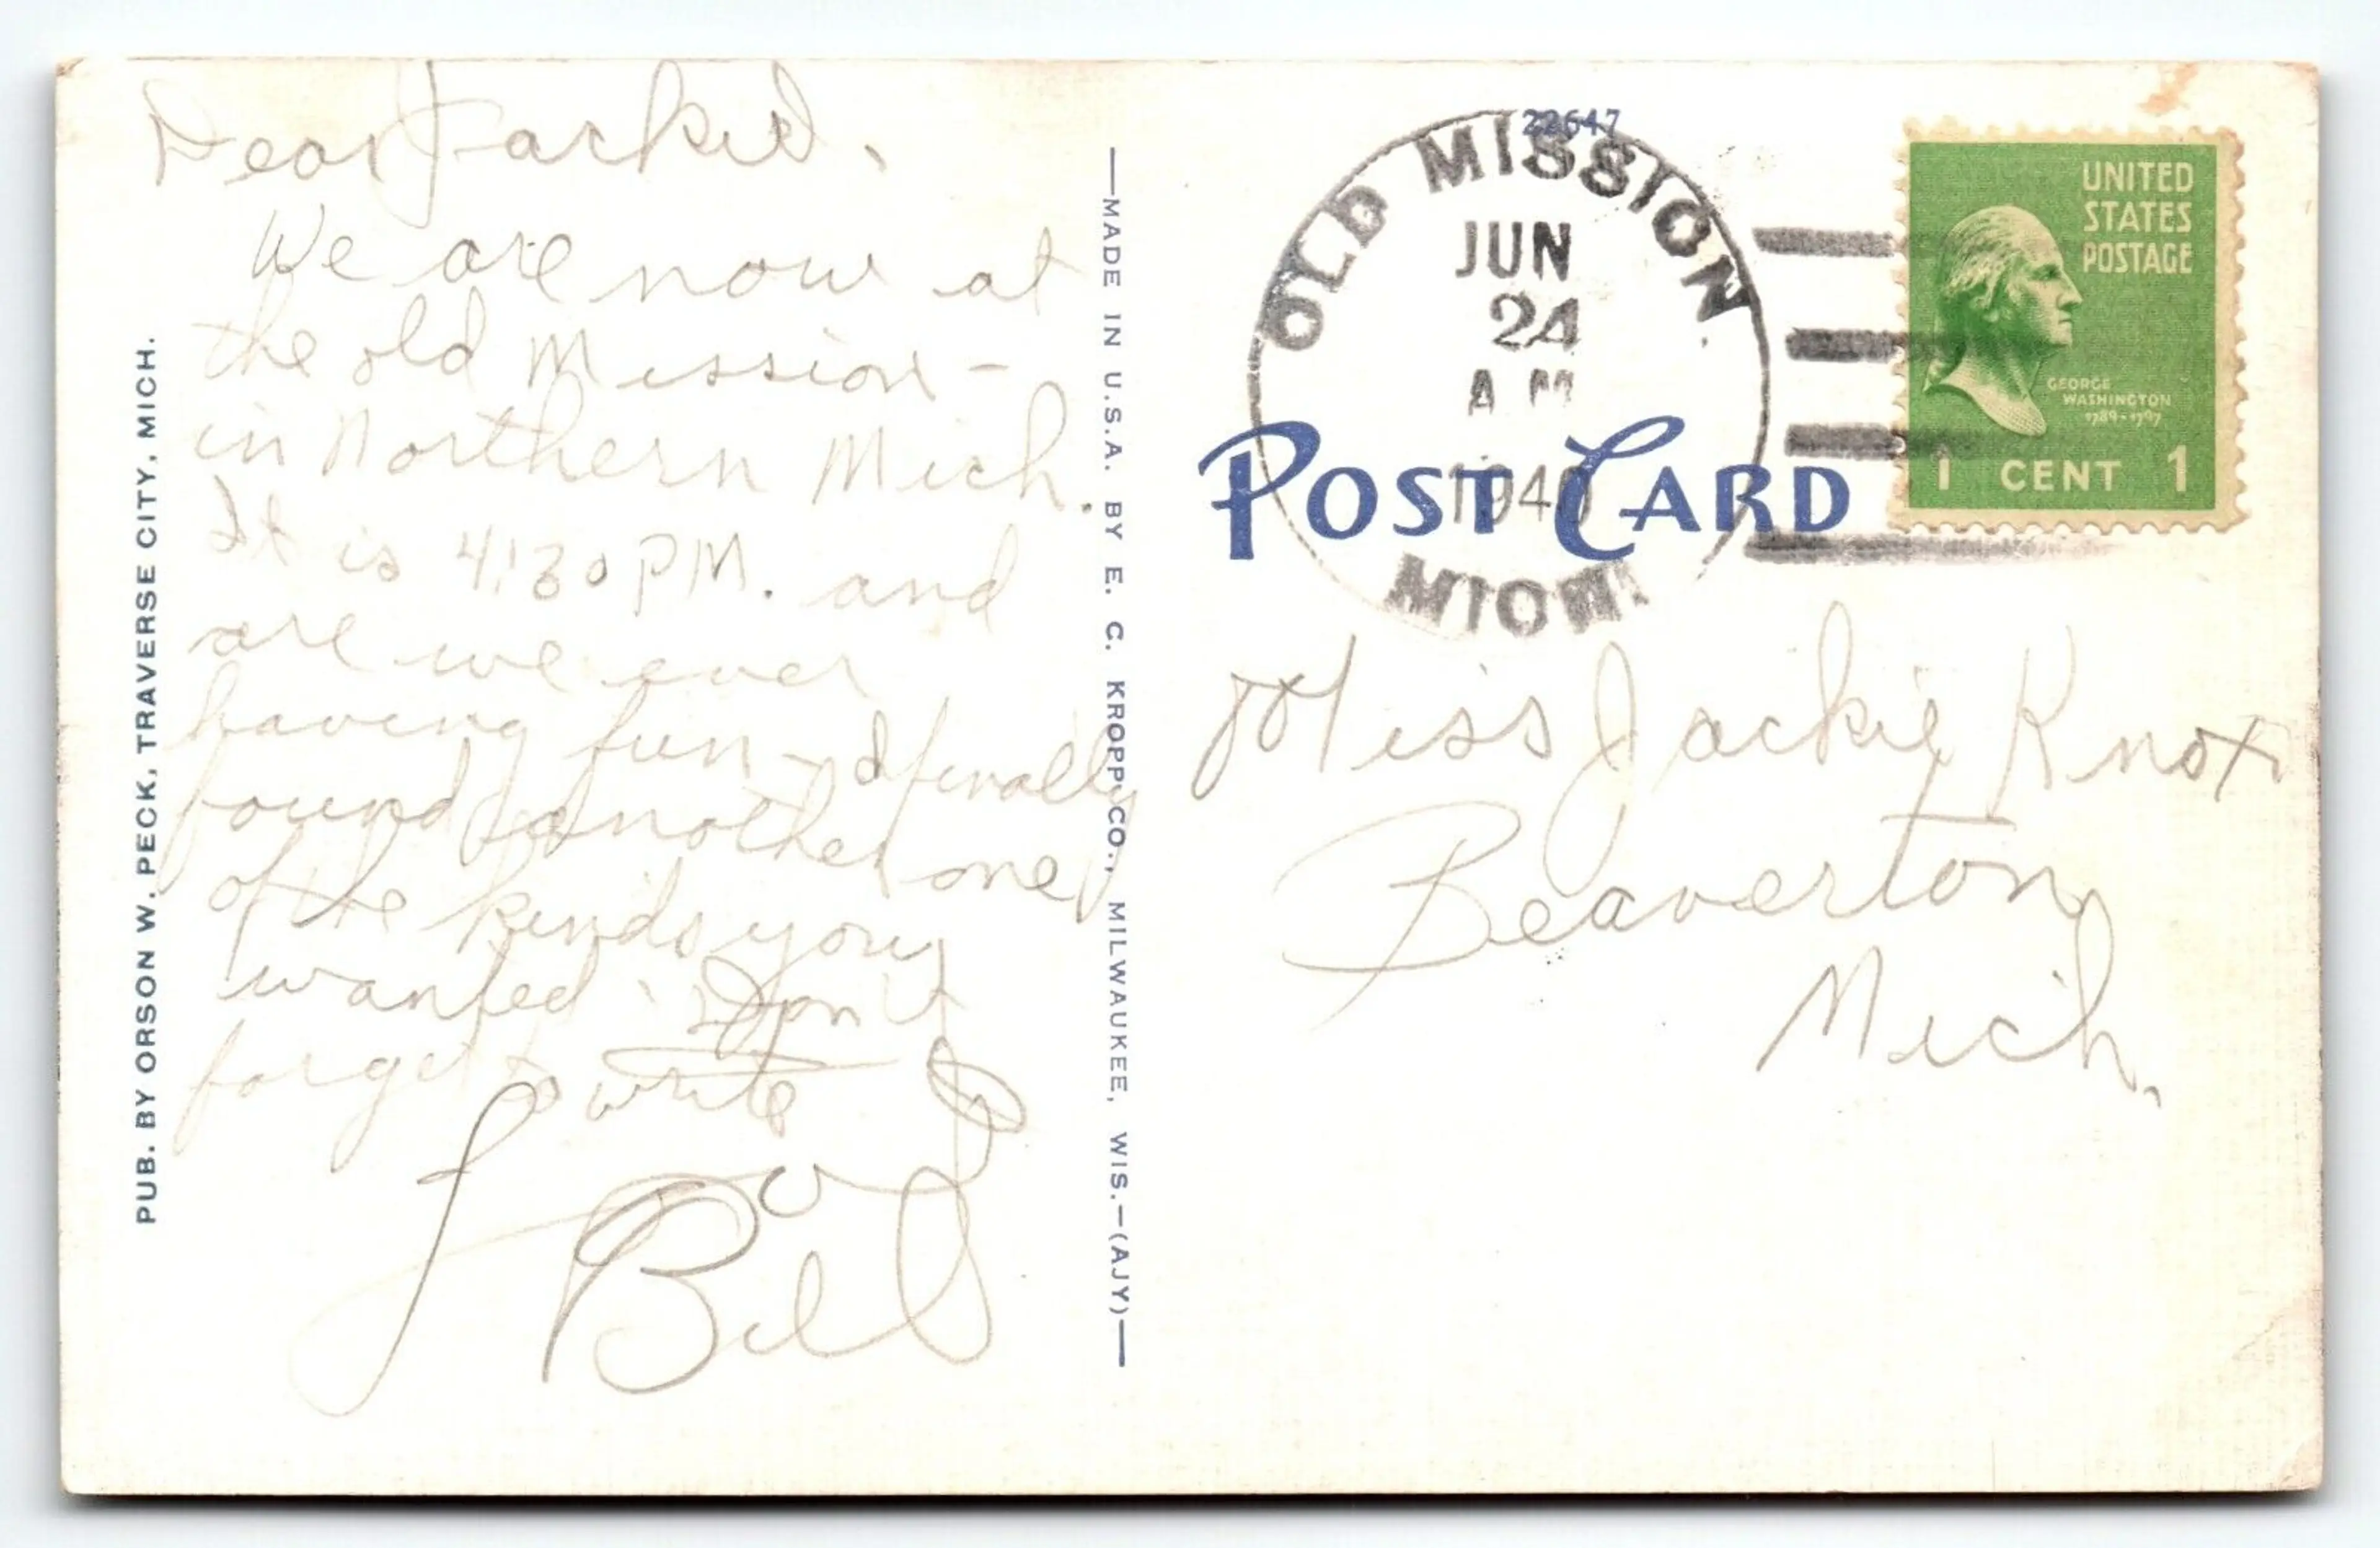 Dear Jackie,
We are now at
the old Mission -
in Northern Mich.
It is 4:30 PM. and
are we ever
having fun - I finally
found another one
of the kinds you
wanted. Don't
forget to write
Bill
PUB. BY ORSON W. PECK, TRAVERSE CITY, MICH.
—MADE IN U.S.A. BY E. C. KROPP CO., MILWAUKEE, WIS.—(AJY)—
22647
OLD MISSION.
JUN
24
AM
1940
MICH.
POST CARD
UNITED
STATES
POSTAGE
GEORGE
WASHINGTON
1789-1797
1 CENT 1
Miss Jackie Knox
Beaverton
Mich.